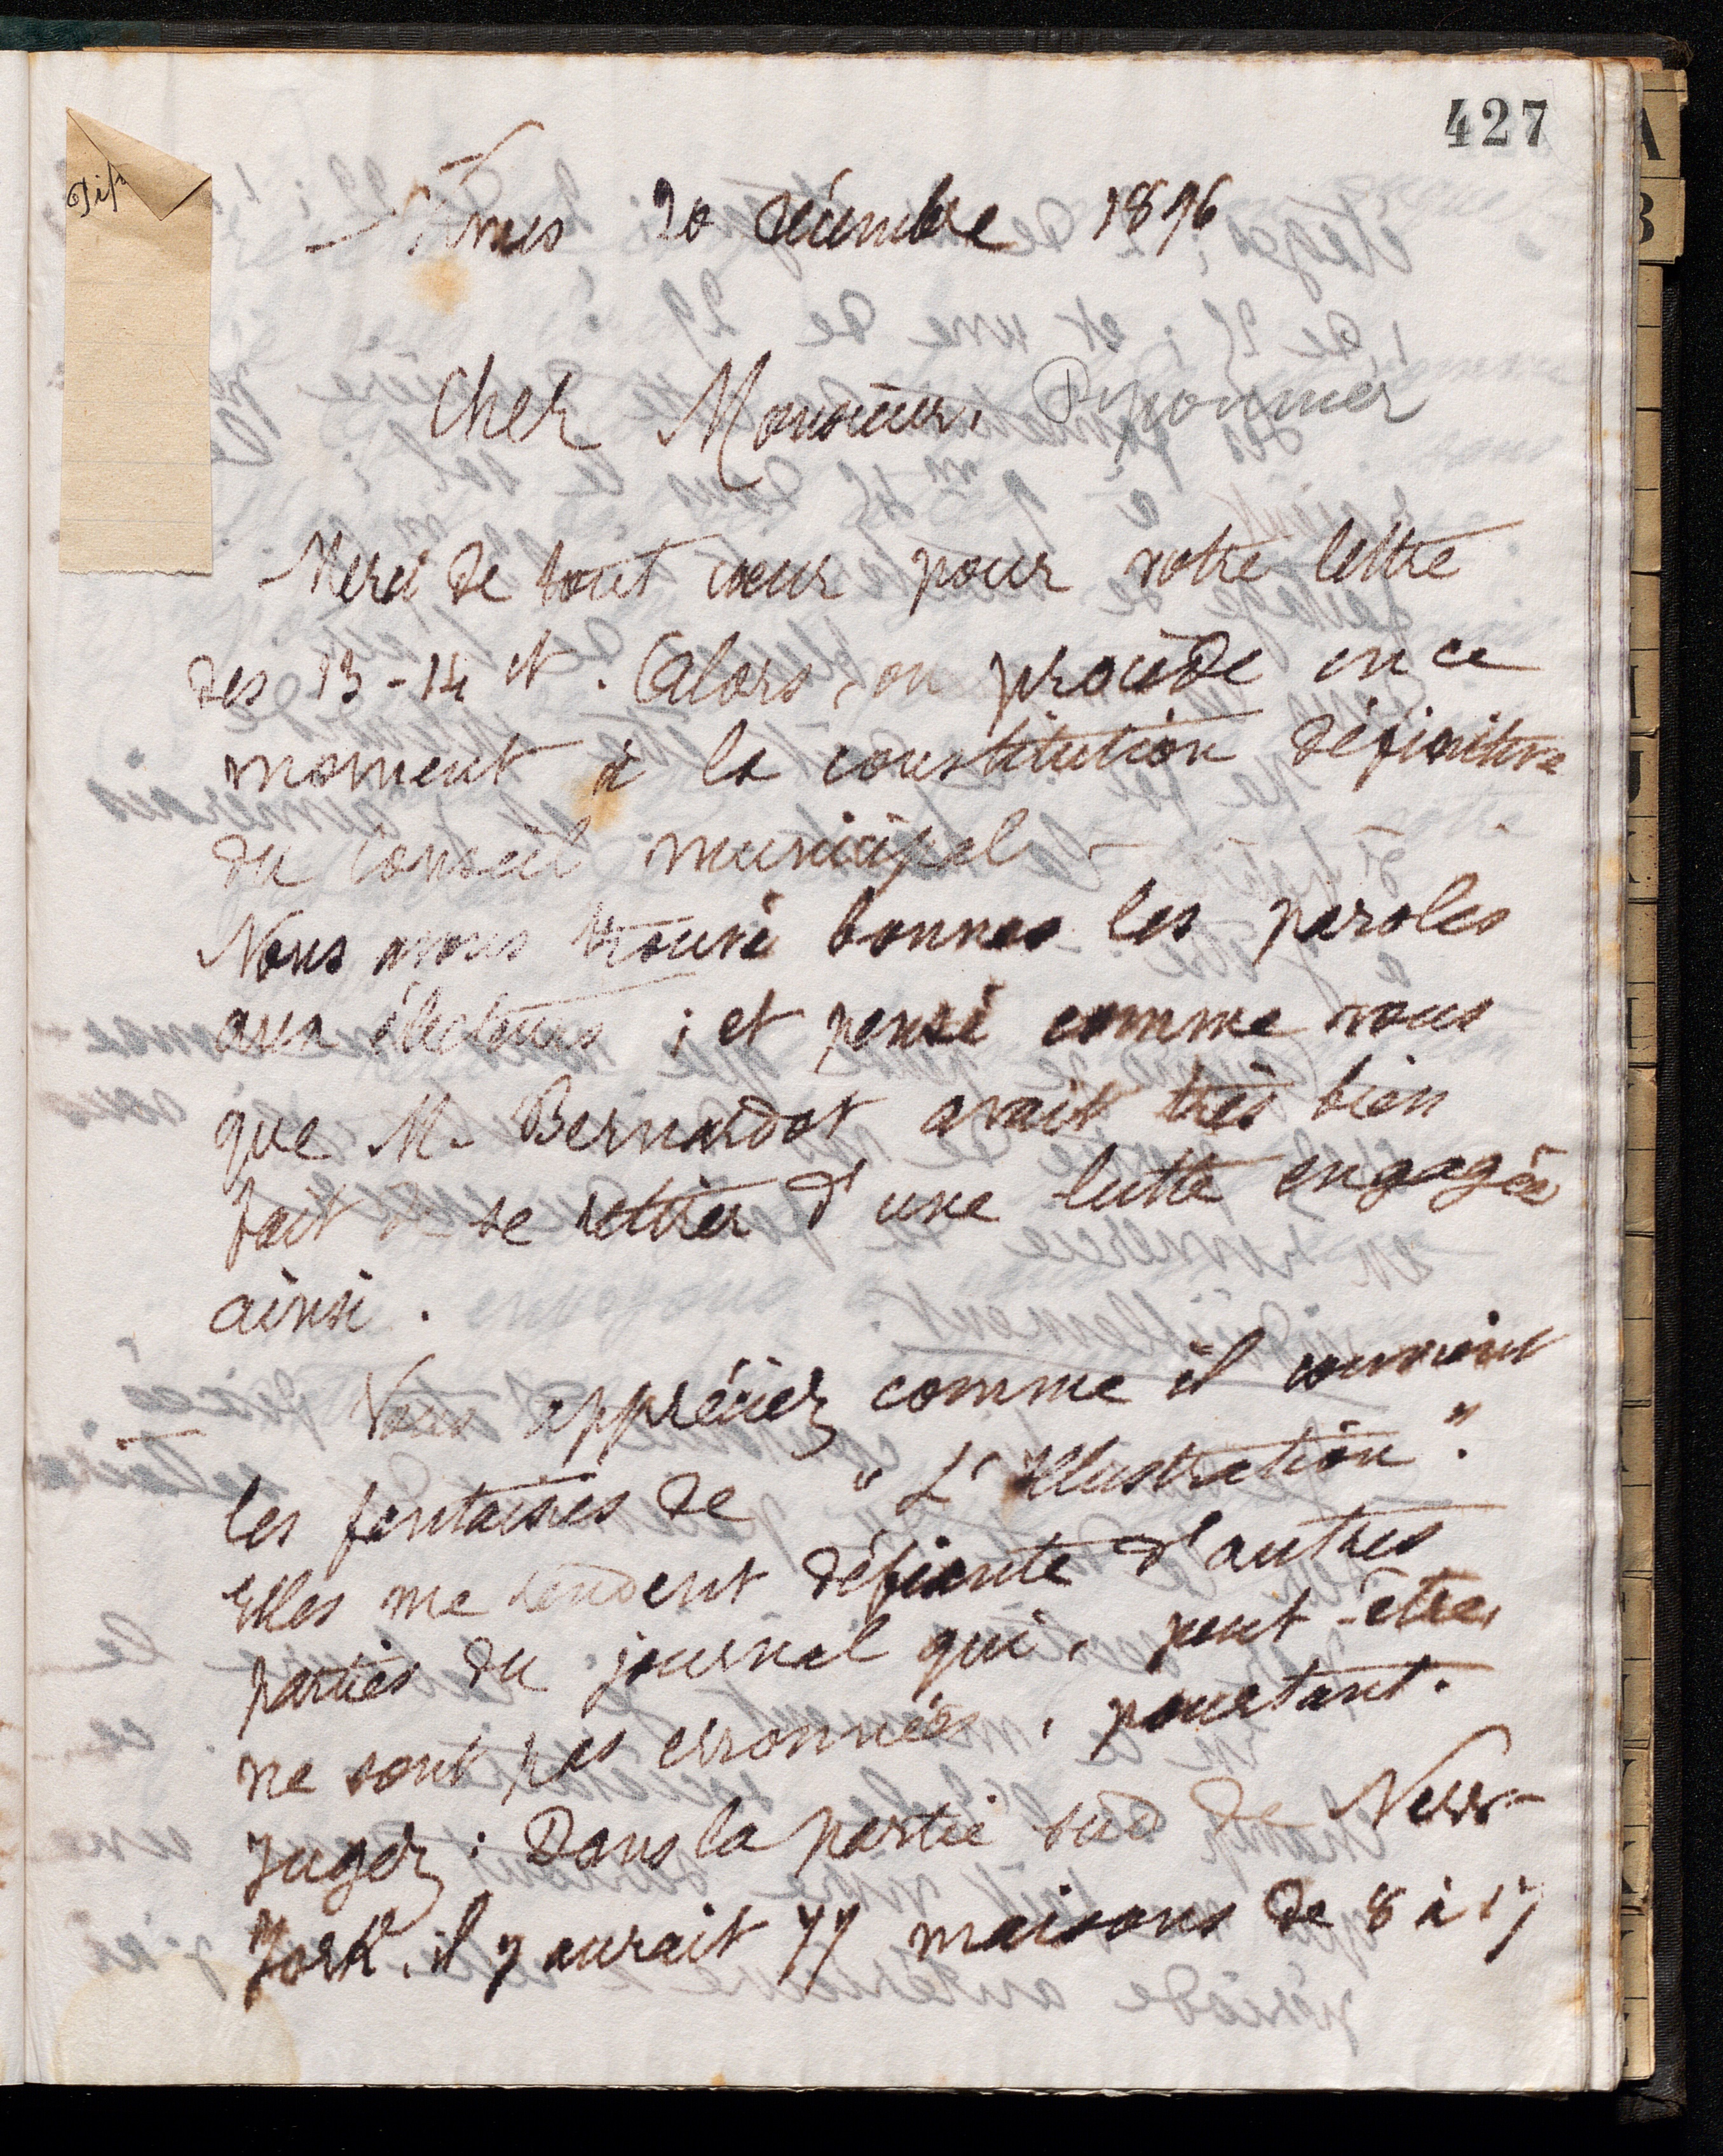 427
Dip
Nîmes 20 décembre 1896
Cher Monsieur, Piponnier
Merci de tout cœur pour votre lettre
des 13-14 ct. Alors, on procède en ce
moment à la constitution définitive
du Conseil municipal.
Nous avons trouvé bonnes les paroles
aux électeurs ; et pensé comme vous
que M. Bernardot avait très bien
fait de se retirer d'une lutte engagée
ainsi.
Vous appréciez comme il convient
les fantaisies de "L'Illustration".
Elles me rendent défiante d'autres
parties du journal qui, peut-être,
ne sont pas erronnées, pourtant.
Jugez : Dans la partie sud de New-
York, il y aurait 77 maisons de 8 à 17